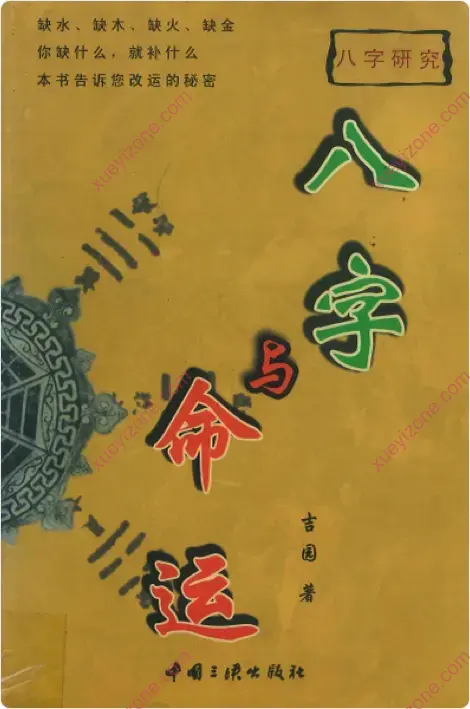 缺水、缺木、缺火、缺金
你缺什么，就补什么
本书告诉您改运的秘密
八字研究
八字
与
命运
吉园 著
中国三峡出版社
xueyizone.com
xueyizone.com
xueyizone.com
xueyizone.com
xueyizone.com
xueyizone.com
xueyizone.com
xueyizone.com